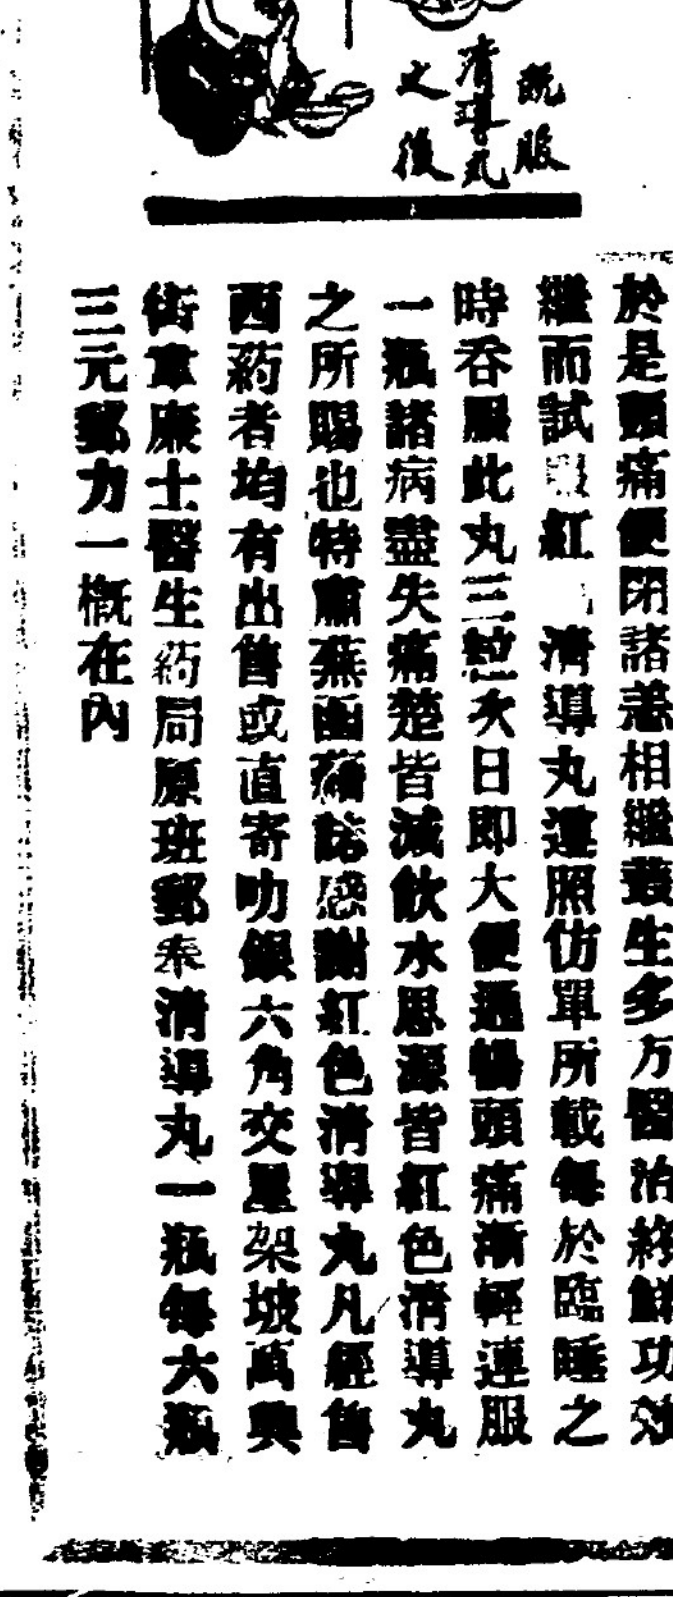 既服
清導丸
之後
於是頭痛便閉諸恙相繼叢生多方醫治終鮮功效
繼而試服紅清導丸遵照仿單所載每於臨睡之
時吞服此丸三粒次日即大便通暢頭痛漸輕連服
一瓶諸病盡失痛楚皆減飲水思源皆紅色清導丸
之所賜也特肅蕪函藉誌感謝紅色清導丸凡經售
西葯者均有出售或直寄叻銀六角交星架坡萬興
街韋廉士醫生葯局原班郵奉清導丸一瓶每六瓶
三元郵力一概在內